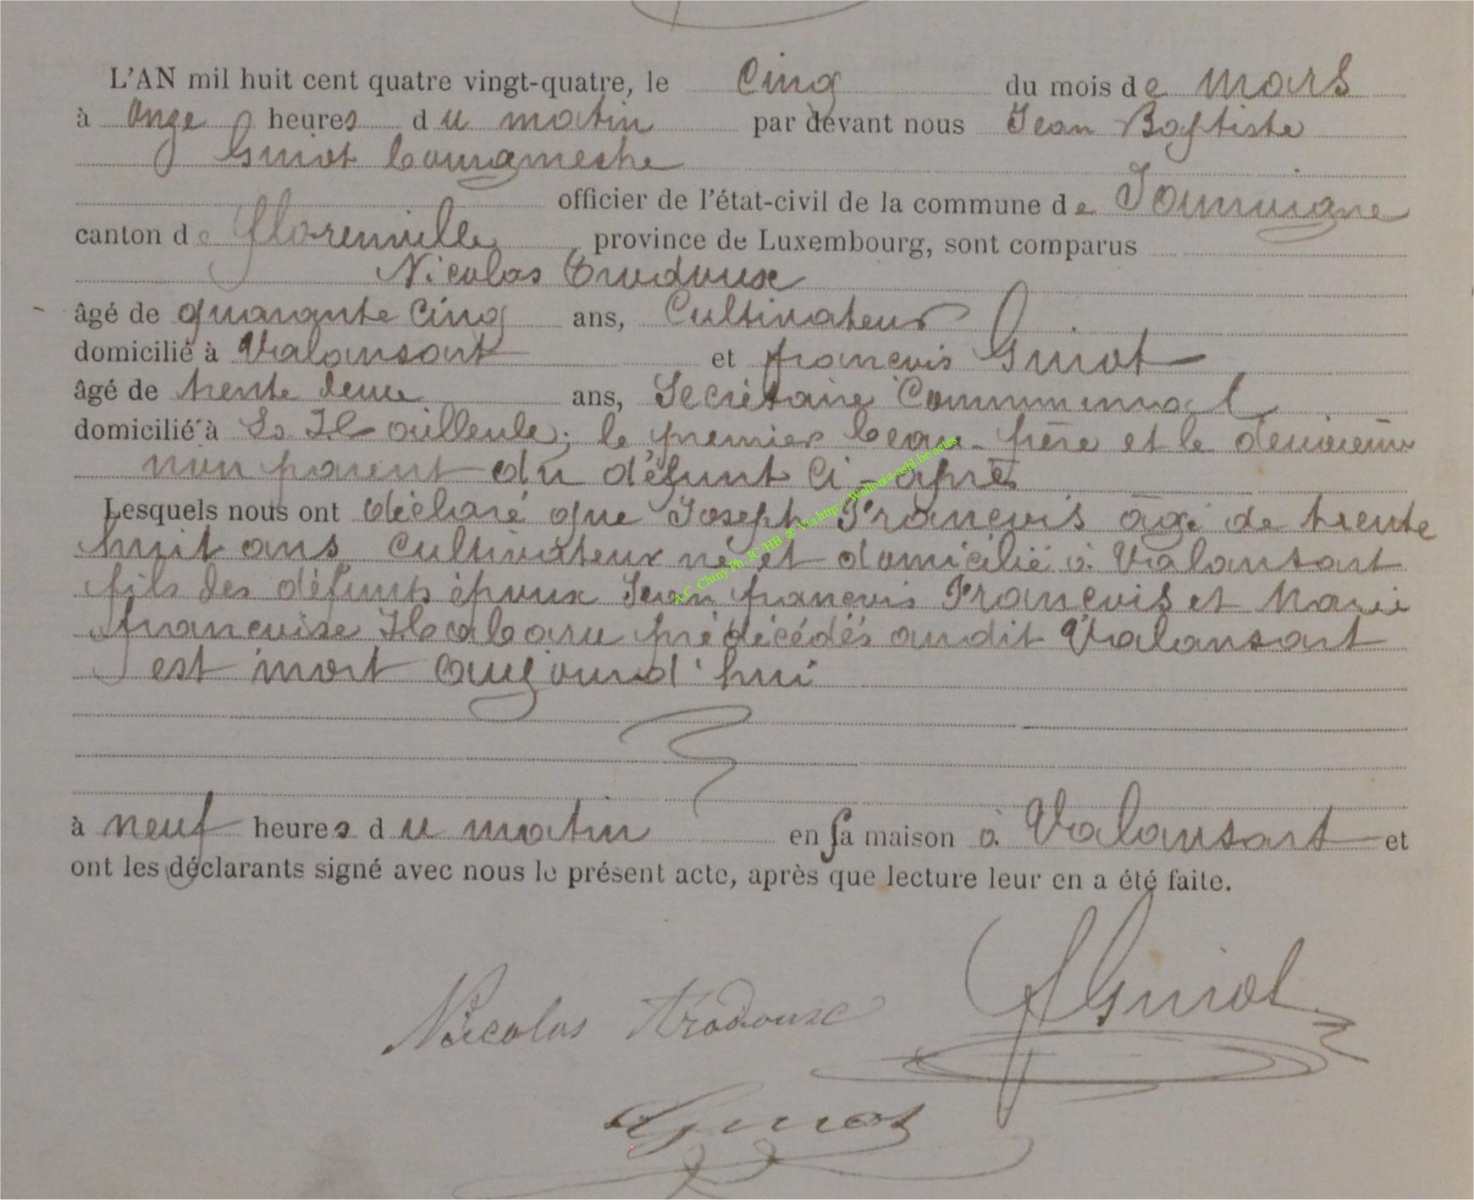 L'AN mil huit cent quatre vingt-quatre, le Cinq du mois de mars
à onze heures du matin par devant nous Jean Baptiste
Guiot Courameshe
officier de l'état-civil de la commune de Jamoigne
canton de florenville, province de Luxembourg, sont comparus
Nicolas Trodoux
âgé de quarante cinq ans, Cultivateur
domicilié à Valansart et françois Guiot
âgé de trente deux ans, Secrétaire Communal
domicilié à La Hailleule; le premier beau-frère et le deuxième
non parent du défunt ci-après
Lesquels nous ont déclaré que Joseph François âgé de trente
huit ans Cultivateur né et domicilié à Valansart
fils des défunts époux Jean françois François et Marie
françoise Habaru prédécédés audit Valansart
est mort aujourd'hui
à neuf heures du matin en sa maison à Valansart et
ont les déclarants signé avec nous le présent acte, après que lecture leur en a été faite.
Nicolas trodoux
f Guiot
Guiot